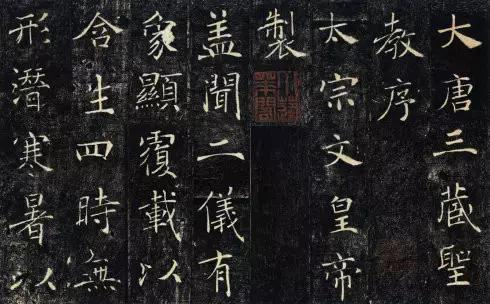 大唐三蔵聖
教序
太宗文皇帝
製
盖聞二儀有
象顯覆載以
含生四時無
形潛寒暑以